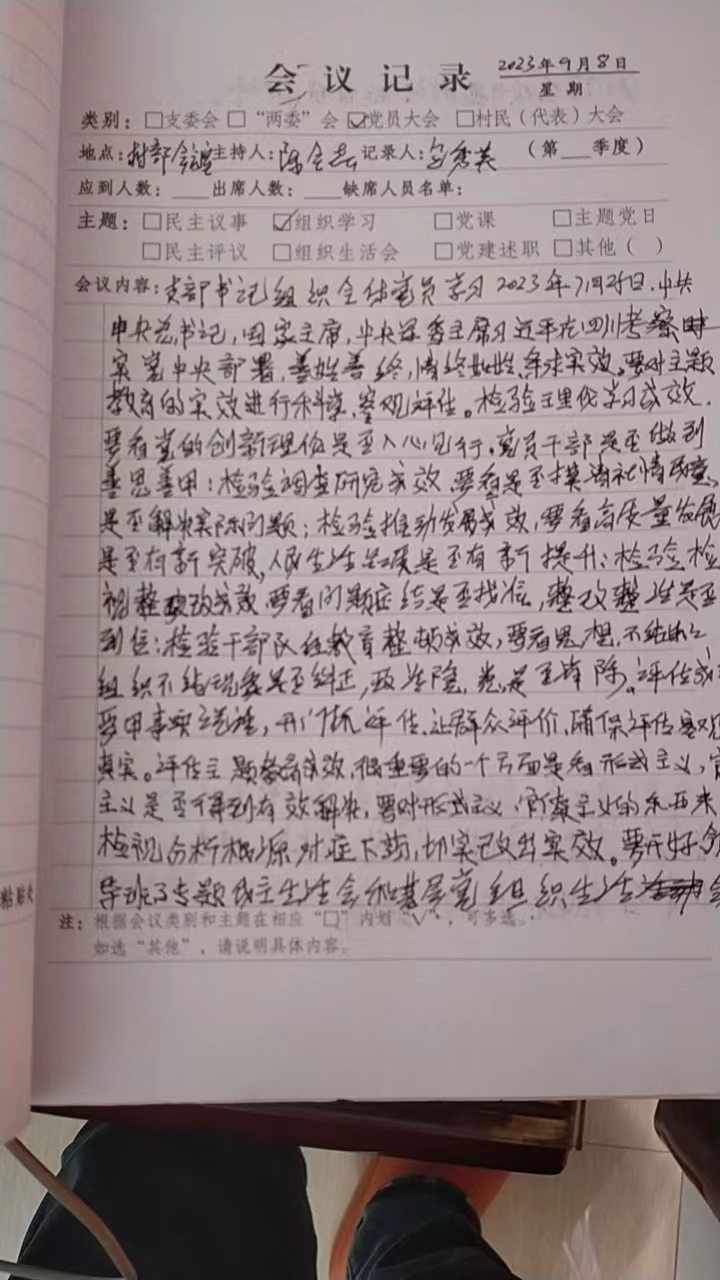 会议记录 2023年9月8日
星期
类别：□支委会 □“两委”会 ☑党员大会 □村民（代表）大会
地点：村部会议室 主持人：陈 记录人：秀英 （第__季度）
应到人数：____出席人数：____缺席人员名单：
主题：□民主议事 ☑组织学习 □党课 □主题党日
□民主评议 □组织生活会 □党建述职 □其他（ ）
会议内容：支部书记组织全体党员学习2023年7月25日，中共
中央总书记，国家主席，中央军委主席习近平在四川考察时
实党中央部署，善始善终，慎终如始，务求实效。要对主题
教育的实效进行科学，客观评估。检验理论学习成效，
要看党的创新理论是否入心见行，党员干部是否做到
善思善用；检验调查研究成效，要看是否摸清社情民意，
是否解决实际问题；检验推动发展成效，要看高质量发展
是否有新突破，人民生活品质是否有新提升；检验检
视整改成效要看问题症结是否找准，整改整治是否
到位；检验干部队伍教育整顿成效，要看思想，不纯的
组织不纯现象是否纠正，政治隐患是否清除。评估成
要用事实说话，开门抓评估，让群众评价，确保评估客观
真实。评估主题教育成效，很重要的一个方面是看形式主义，官
主义是否得到有效解决，要对形式主义、官僚主义的东西来
检视分析根源对症下药，切实改出实效。要开好领
导班子专题民主生活会和基层党组织生活会
粘贴处
注：根据会议类别和主题在相应“□”内划“√”，可多选。
如选“其他”，请说明具体内容。